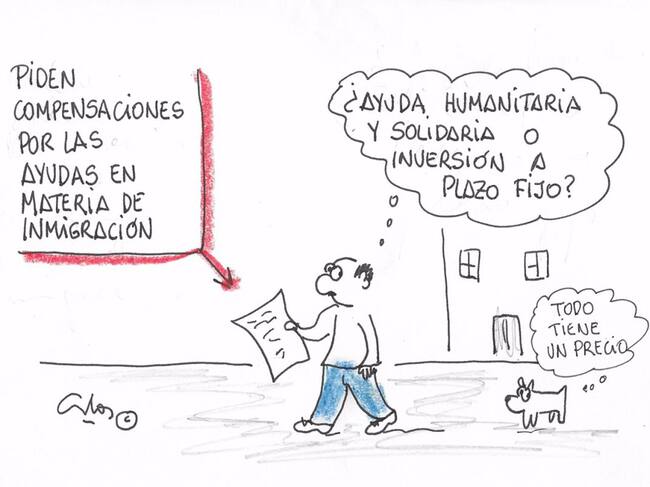 PIDEN
COMPENSACIONES
POR LAS
AYUDAS EN
MATERIA DE
INMIGRACIÓN
¿AYUDA HUMANITARIA
Y SOLIDARIA O
INVERSIÓN A
PLAZO FIJO?
TODO
TIENE
UN PRECIO
©